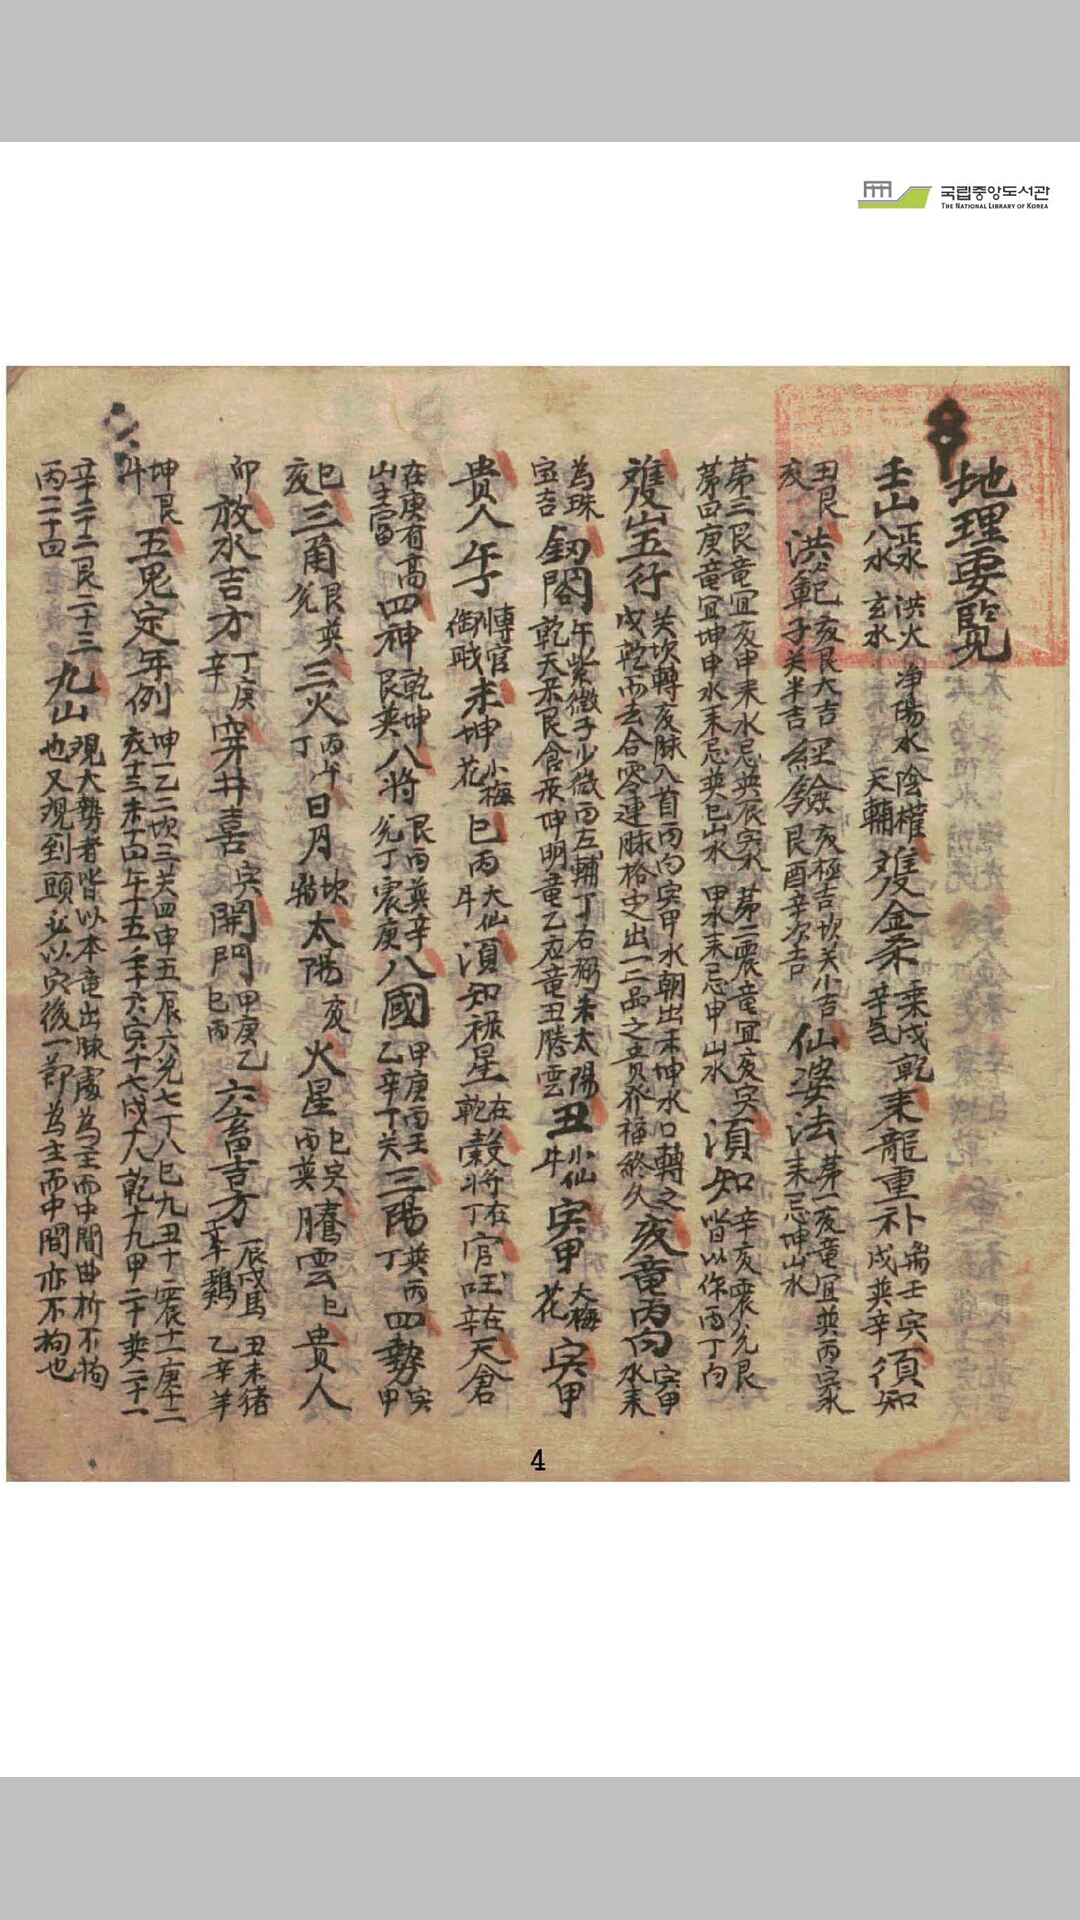 국립중앙도서관
THE NATIONAL LIBRARY OF KOREA
地理要覽
壬山 正水 洪火 淨陽水 陰權 八水 玄水 天輔 雙金 乘戌乾 辛氣 來龍重 須知
丑艮 亥 洪範 亥艮大吉 子 半吉 經驗 亥極吉坎 小吉 艮酉辛次吉 仙婆法 苐一亥竜宜 丙 來忌坤山水
苐三艮竜宜亥申来水忌 辰 水 苐二震竜宜亥 苐四庚竜宜坤申水来忌 巳山水 甲水来忌申山水 須知 辛亥震兊艮 皆以作丙丁向
雙山五行 坎轉亥脉入首丙向 甲水朝出未坤水口轉之 戌乾而去合零連脉格 出一二品之貴 福終久 亥竜丙向 甲 水来
為珠 宝吉 釼閣 午紫微子少微丙左輔丁右弼未太陽 乾天 艮 坤明竜乙 竜丑騰雲 丑 小仙 牛 甲 大梅 花 甲
贵人 午丁 轉官 御 未坤 小梅 花 巳丙 大仙 牛 湏知 禄星 在乾 穀將 在丁 官 在辛 天倉
在庚有高 山主富 四神 乾坤 艮 八將 艮丙 辛 兊丁震庚 八國 甲庚丙壬 乙辛丁 三陽 丙 丁 四勢 甲
巳 亥 三角 艮 兊 三火 丙午 丁 日月 坎 太陽 亥 火星 巳 丙 騰雲 巳 贵人
卯 放水吉方 丁庚 辛 穿井喜 開門 甲庚乙 巳丙 六畜吉方 辰戌馬 丑未猪 鷄 乙辛羊
坤艮 斗 五鬼定年例 坤一乙二坎三 四申五辰六兊七丁八巳九丑十震十一庚十二 亥十三未十四午十五壬十六 十七戌十八乾十九甲二十 二十一
辛二十二艮二十三 丙二十四 九山 觀大勢者皆以本竜出脉處為主而中間曲折不拘 也又現到頭 以穴後一節為主而中間亦不拘也
4